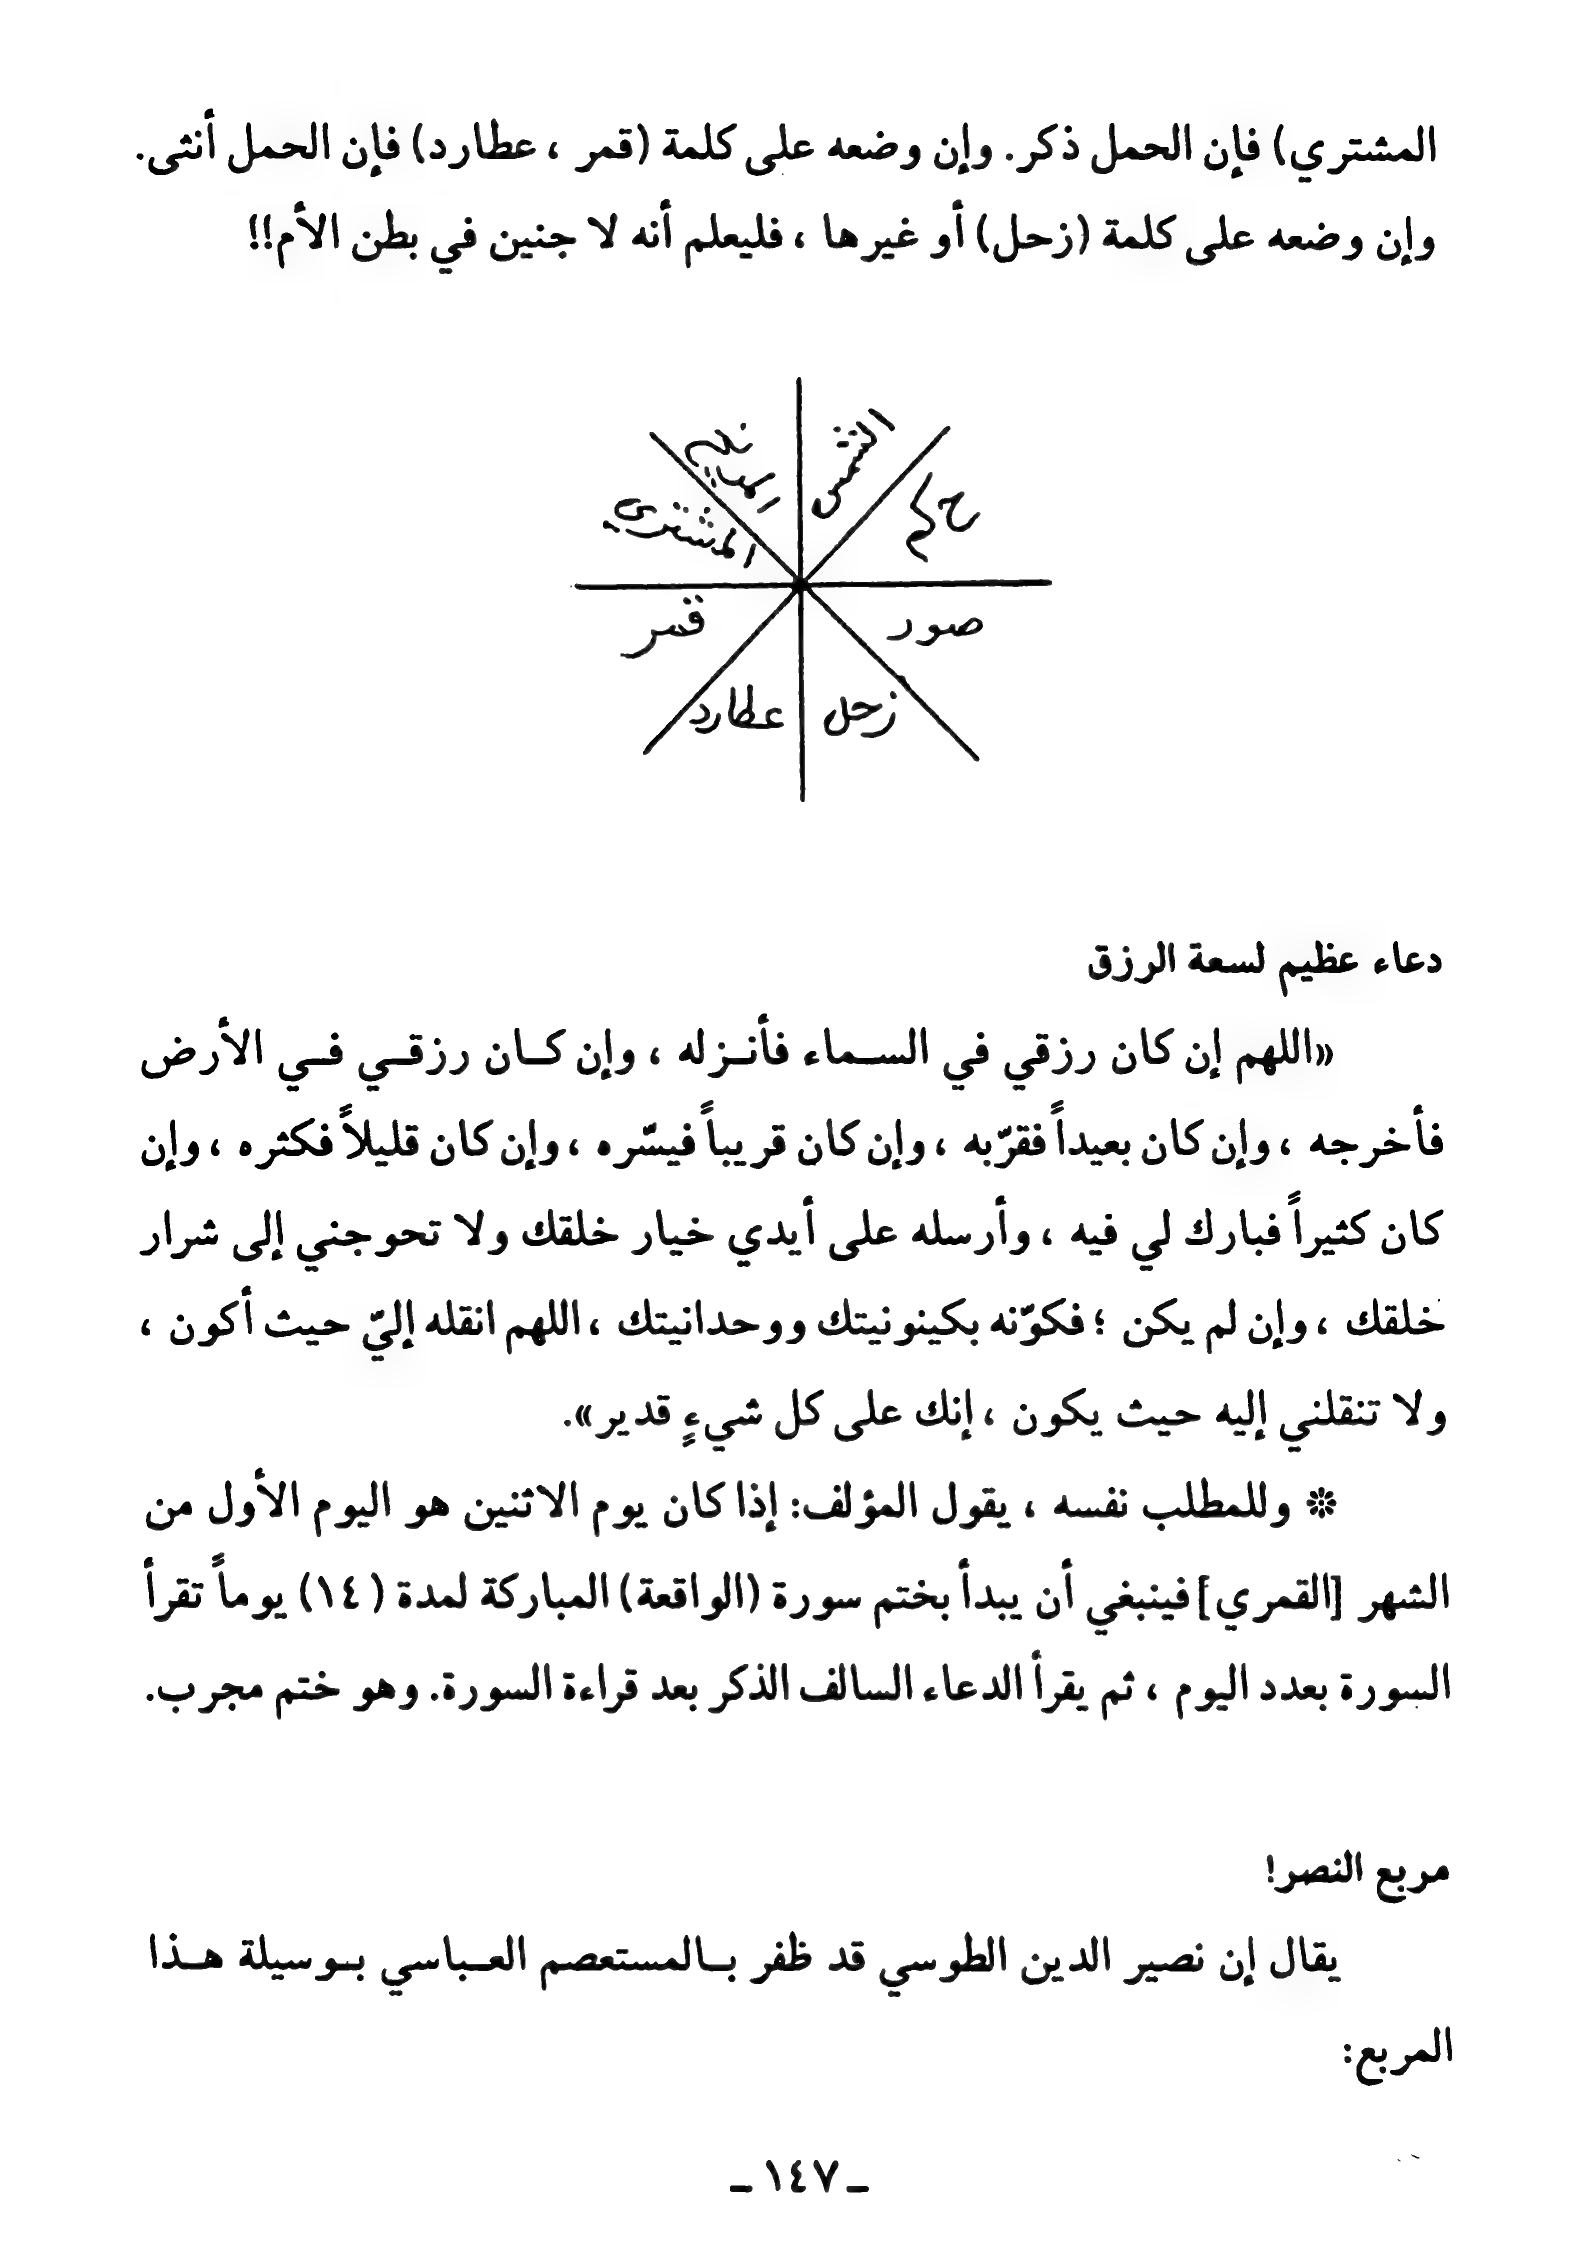 المشتري) فإن الحمل ذكر. وإن وضعه على كلمة (قمر ، عطارد) فإن الحمل أنثى.
وإن وضعه على كلمة (زحل) أو غيرها ، فليعلم أنه لا جنين في بطن الأم!!
الشمس
المريخ
المشتري
قمر
صور
عطارد
زحل
دعاء عظيم لسعة الرزق
«اللهم إن كان رزقي في السـماء فأنـزله ، وإن كـان رزقـي فـي الأرض
فأخرجه ، وإن كان بعيداً فقرّبه ، وإن كان قريباً فيسّره ، وإن كان قليلاً فكثره ، وإن
كان كثيراً فبارك لي فيه ، وأرسله على أيدي خيار خلقك ولا تحوجني إلى شرار
خلقك ، وإن لم يكن ؛ فكوّنه بكينونيتك ووحدانيتك ، اللهم انقله إليّ حيث أكون ،
ولا تنقلني إليه حيث يكون ، إنك على كل شيءٍ قدير».
❊ وللمطلب نفسه ، يقول المؤلف: إذا كان يوم الاثنين هو اليوم الأول من
الشهر [القمري] فينبغي أن يبدأ بختم سورة (الواقعة) المباركة لمدة (١٤) يوماً تقرأ
السورة بعدد اليوم ، ثم يقرأ الدعاء السالف الذكر بعد قراءة السورة. وهو ختم مجرب.
مربع النصر!
يقال إن نصير الدين الطوسي قد ظفر بـالمستعصم العـباسي بـوسيلة هـذا
المربع:
ـ ١٤٧ ـ